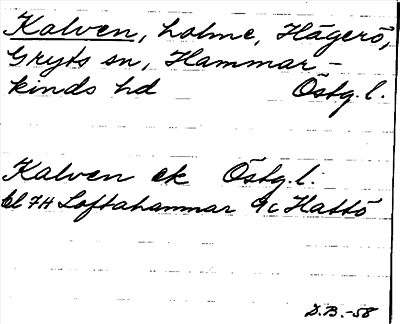 Kalven, holme, Hägerö,
Gryts sn, Hammar-
kinds hd Östg.l.
Kalven ek Östg.l.
bl 74 Loftahammar 9c Kattö
D.B.-58